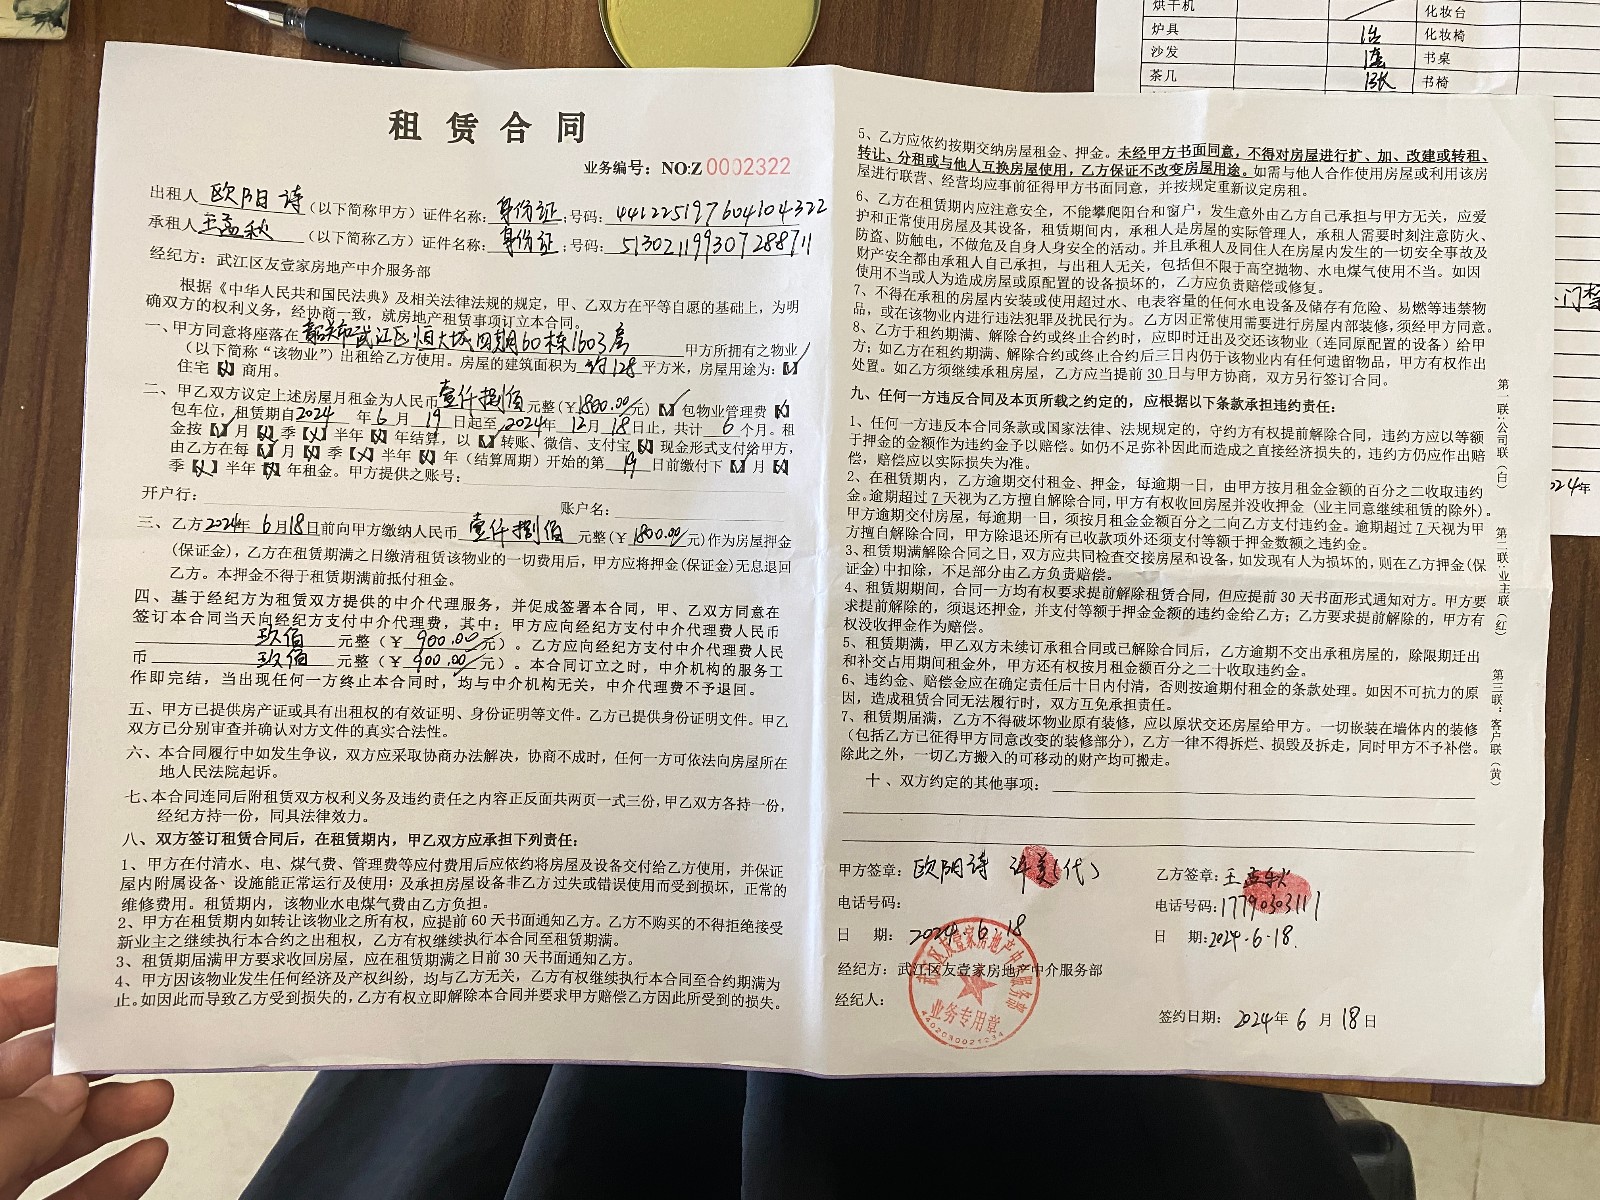 租赁合同
业务编号：NO:Z 0002322
出租人 欧阳诗 （以下简称甲方）证件名称：身份证；号码：441225197604104322
承租人 王孟秋 （以下简称乙方）证件名称：身份证；号码：513021199307288711
经纪方：武江区友壹家房地产中介服务部
根据《中华人民共和国民法典》及相关法律法规的规定，甲、乙双方在平等自愿的基础上，为明
确双方的权利义务，经协商一致，就房地产租赁事项订立本合同。
一、甲方同意将座落在 韶关市武江区恒大城四期60栋1603房 甲方所拥有之物业
（以下简称“该物业”）出租给乙方使用。房屋的建筑面积为 约128 平方米，房屋用途为：【✓】
住宅【✗】商用。
二、甲乙双方议定上述房屋月租金为人民币 壹仟捌佰 元整(￥1800.00/元)【✓】包物业管理费【✗】
包车位，租赁期自2024 年 6 月 19 日起至 2024年 12月 18日止，共计 6 个月。租
金按【✓】月【✗】季【✗】半年【✗】年结算，以【✓】转账、微信、支付宝【✗】现金形式支付给甲方，
由乙方在每【✓】月【✗】季【✗】半年【✗】年（结算周期）开始的第 19 日前缴付下【✓】月【✗】
季【✗】半年【✗】年租金。甲方提供之账号：
开户行： 账户名：
三、乙方2024年 6月18日前向甲方缴纳人民币 壹仟捌佰 元整(￥1800.00/元)作为房屋押金
(保证金)，乙方在租赁期满之日缴清租赁该物业的一切费用后，甲方应将押金(保证金)无息退回
乙方。本押金不得于租赁期满前抵付租金。
四、基于经纪方为租赁双方提供的中介代理服务，并促成签署本合同，甲、乙双方同意在
签订本合同当天向经纪方支付中介代理费，其中：甲方应向经纪方支付中介代理费人民币
玖佰 元整（￥ 900.00/元）。乙方应向经纪方支付中介代理费人民
币 玖佰 元整（￥ 900.00/元）。本合同订立之时，中介机构的服务工
作即完结，当出现任何一方终止本合同时，均与中介机构无关，中介代理费不予退回。
五、甲方已提供房产证或具有出租权的有效证明、身份证明等文件。乙方已提供身份证明文件。甲乙
双方已分别审查并确认对方文件的真实合法性。
六、本合同履行中如发生争议，双方应采取协商办法解决，协商不成时，任何一方可依法向房屋所在
地人民法院起诉。
七、本合同连同后附租赁双方权利义务及违约责任之内容正反面共两页一式三份，甲乙双方各持一份，
经纪方持一份，同具法律效力。
八、双方签订租赁合同后，在租赁期内，甲乙双方应承担下列责任：
1、甲方在付清水、电、煤气费、管理费等应付费用后应依约将房屋及设备交付给乙方使用，并保证
屋内附属设备、设施能正常运行及使用；及承担房屋设备非乙方过失或错误使用而受到损坏，正常的
维修费用。租赁期内，该物业水电煤气费由乙方负担。
2、甲方在租赁期内如转让该物业之所有权，应提前60天书面通知乙方。乙方不购买的不得拒绝接受
新业主之继续执行本合约之出租权，乙方有权继续执行本合同至租赁期满。
3、租赁期届满甲方要求收回房屋，应在租赁期满之日前30天书面通知乙方。
4、甲方因该物业发生任何经济及产权纠纷，均与乙方无关，乙方有权继续执行本合同至合约期满为
止。如因此而导致乙方受到损失的，乙方有权立即解除本合同并要求甲方赔偿乙方因此所受到的损失。
5、乙方应依约按期交纳房屋租金、押金。未经甲方书面同意，不得对房屋进行扩、加、改建或转租、
转让、分租或与他人互换房屋使用，乙方保证不改变房屋用途。如需与他人合作使用房屋或利用该房
屋进行联营、经营均应事前征得甲方书面同意，并按规定重新议定房租。
6、乙方在租赁期内应注意安全，不能攀爬阳台和窗户，发生意外由乙方自己承担与甲方无关，应爱
护和正常使用房屋及其设备，租赁期间内，承租人是房屋的实际管理人，承租人需要时刻注意防火、
防盗、防触电，不做危及自身人身安全的活动。并且承租人及同住人在房屋内发生的一切安全事故及
财产安全都由承租人自己承担，与出租人无关，包括但不限于高空抛物、水电煤气使用不当。如因
使用不当或人为造成房屋或原配置的设备损坏的，乙方应负责赔偿或修复。
7、不得在承租的房屋内安装或使用超过水、电表容量的任何水电设备及储存有危险、易燃等违禁物
品，或在该物业内进行违法犯罪及扰民行为。乙方因正常使用需要进行房屋内部装修，须经甲方同意。
8、乙方于租约期满、解除合约或终止合约时，应即时迁出及交还该物业（连同原配置的设备）给甲
方；如乙方在租约期满、解除合约或终止合约后三日内仍于该物业内有任何遗留物品，甲方有权作出
处置。如乙方须继续承租房屋，乙方应当提前30日与甲方协商，双方另行签订合同。
九、任何一方违反合同及本页所载之约定的，应根据以下条款承担违约责任：
1、任何一方违反本合同条款或国家法律、法规规定的，守约方有权提前解除合同，违约方应以等额
于押金的金额作为违约金予以赔偿。如仍不足弥补因此而造成之直接经济损失的，违约方仍应作出赔
偿，赔偿应以实际损失为准。
2、在租赁期内，乙方逾期交付租金、押金，每逾期一日，由甲方按月租金金额的百分之二收取违约
金。逾期超过7天视为乙方擅自解除合同，甲方有权收回房屋并没收押金（业主同意继续租赁的除外）。
甲方逾期交付房屋，每逾期一日，须按月租金金额百分之二向乙方支付违约金。逾期超过7天视为甲
方擅自解除合同，甲方除退还所有已收款项外还须支付等额于押金数额之违约金。
3、租赁期满解除合同之日，双方应共同检查交接房屋和设备，如发现有人为损坏的，则在乙方押金(保
证金)中扣除，不足部分由乙方负责赔偿。
4、租赁期期间，合同一方均有权要求提前解除租赁合同，但应提前30天书面形式通知对方。甲方要
求提前解除的，须退还押金，并支付等额于押金金额的违约金给乙方；乙方要求提前解除的，甲方有
权没收押金作为赔偿。
5、租赁期满，甲乙双方未续订承租合同或已解除合同后，乙方逾期不交出承租房屋的，除限期迁出
和补交占用期间租金外，甲方还有权按月租金额百分之二十收取违约金。
6、违约金、赔偿金应在确定责任后十日内付清，否则按逾期付租金的条款处理。如因不可抗力的原
因，造成租赁合同无法履行时，双方互免承担责任。
7、租赁期届满，乙方不得破坏物业原有装修，应以原状交还房屋给甲方。一切嵌装在墙体内的装修
（包括乙方已征得甲方同意改变的装修部分），乙方一律不得拆烂、损毁及拆走，同时甲方不予补偿。
除此之外，一切乙方搬入的可移动的财产均可搬走。
十、双方约定的其他事项：
甲方签章：欧阳诗 许美(代)
乙方签章：王孟秋
电话号码：
电话号码：17790303111
日 期：2024.6.18
日 期：2024.6.18.
经纪方：武江区友壹家房地产中介服务部
经纪人：
签约日期：2024年 6 月 18日
武江区友壹家房地产中介服务部
业务专用章
4402030021234
第一联：公司联（白）
第二联：业主联（红）
第三联：客户联（黄）
烘干机 化妆台
炉具 1台 化妆椅
沙发 1套 书桌
茶几 1张 书椅
024年